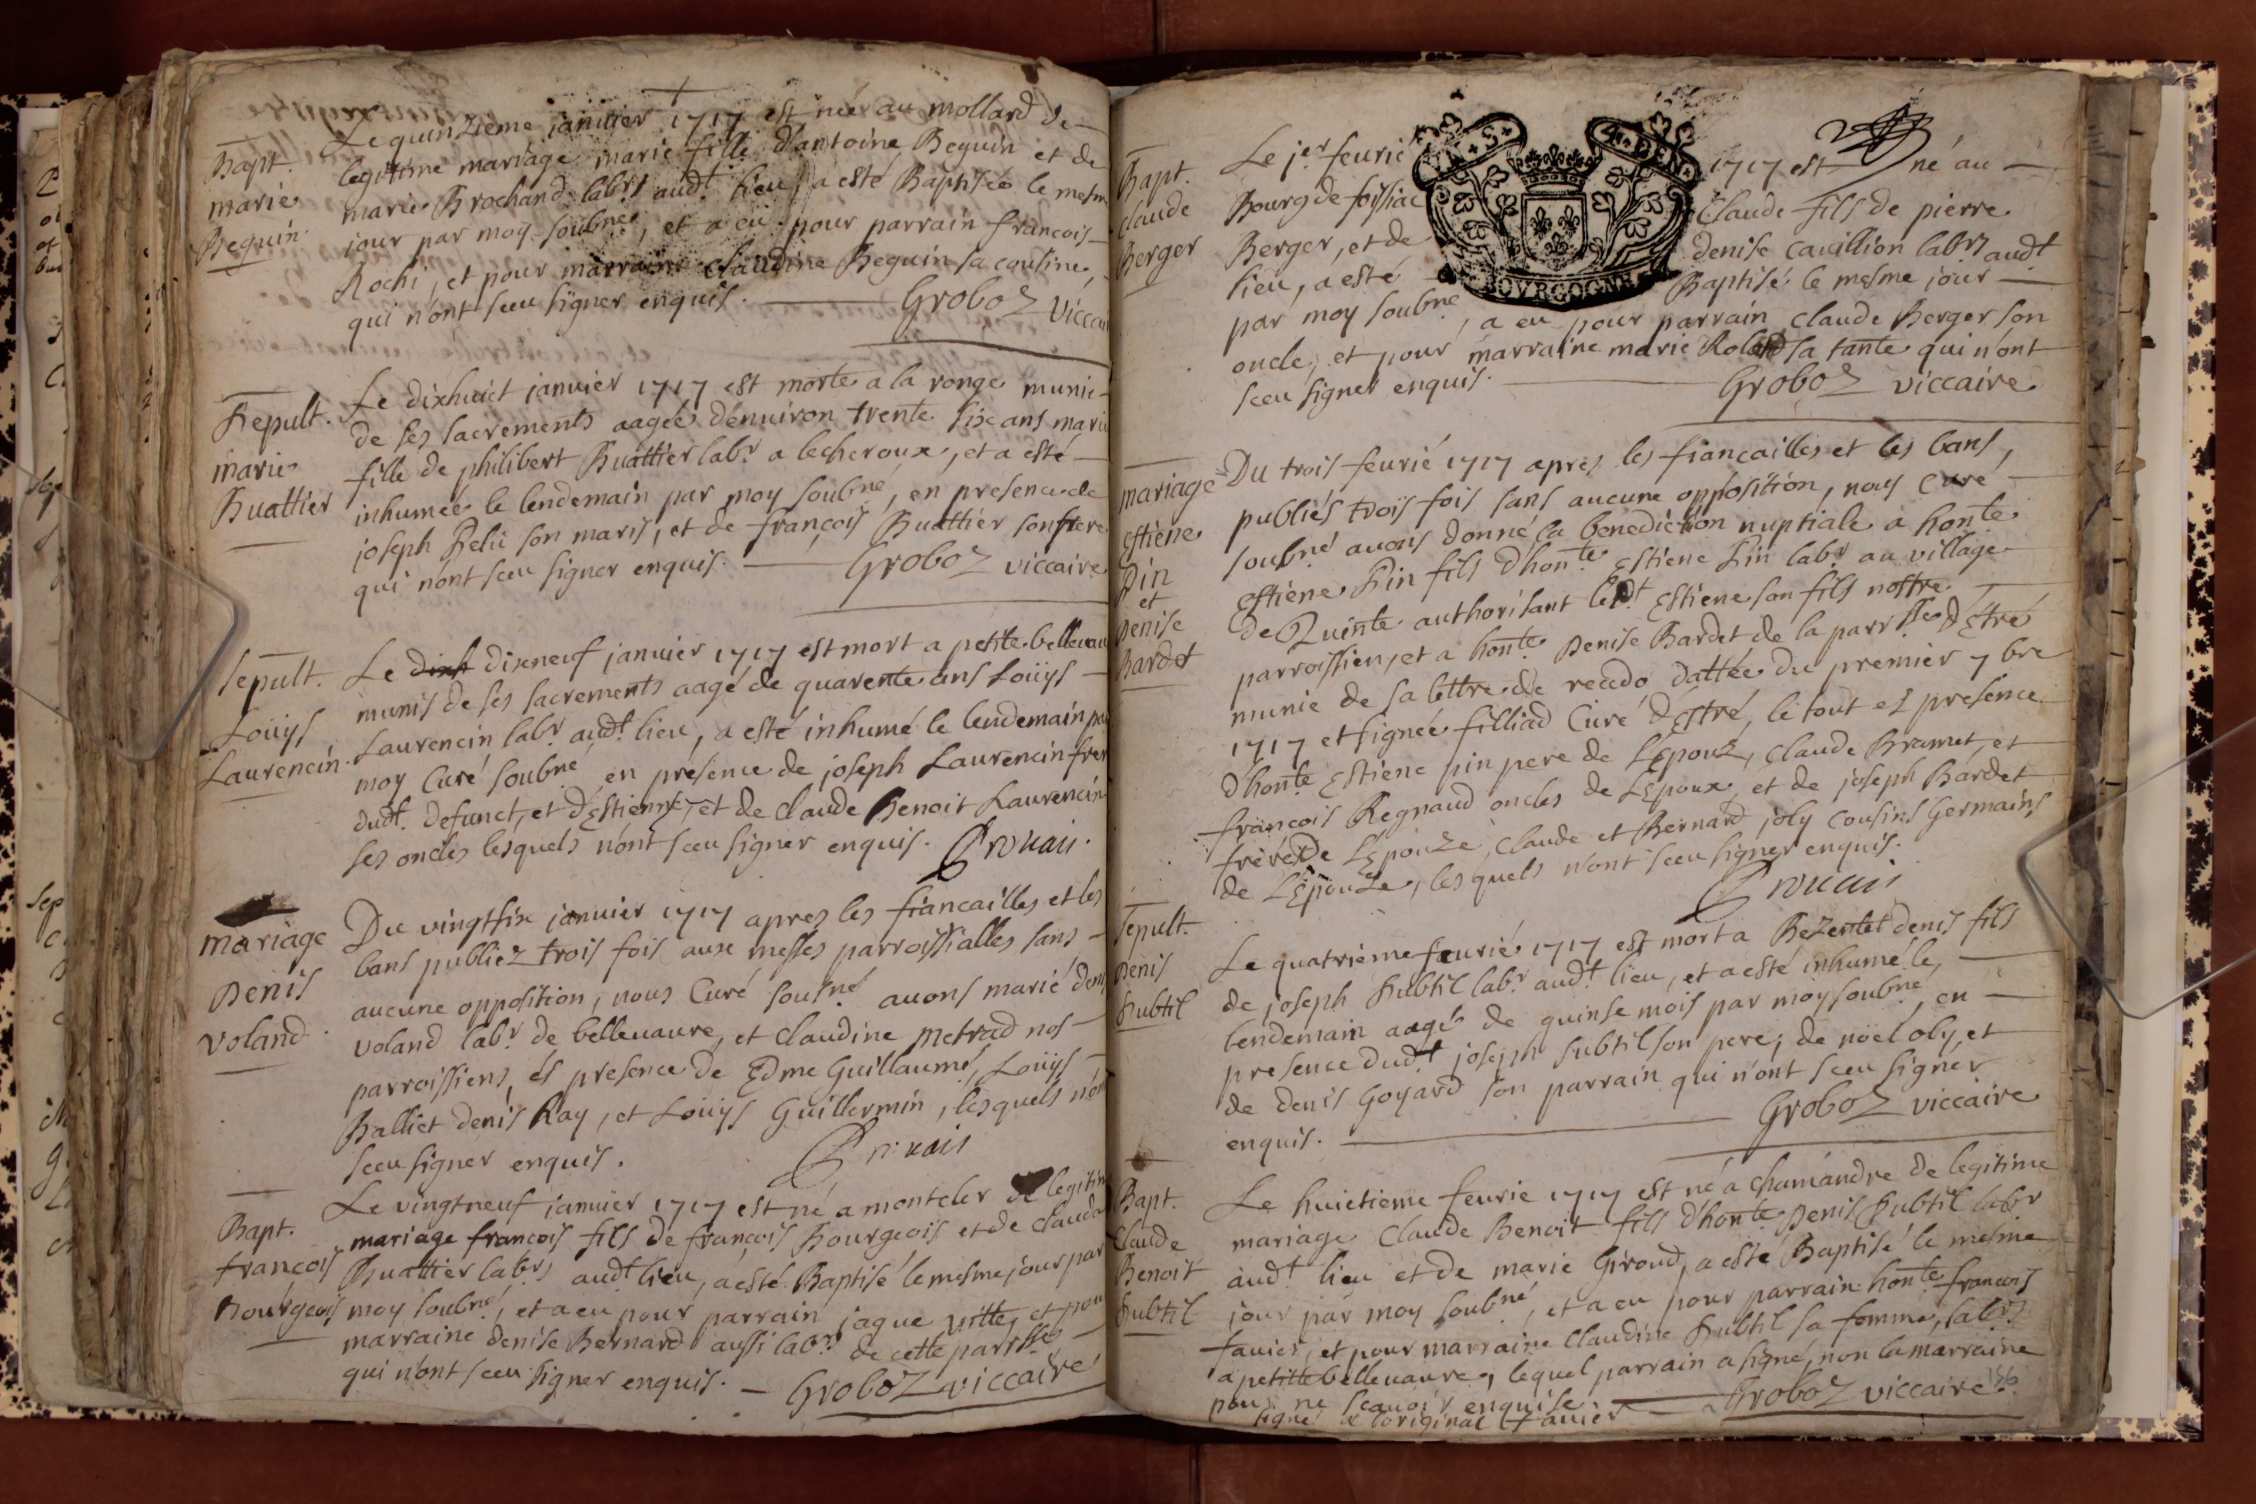 Bapt.
marie
Beguin
Le quinzieme januier 1717 est née au mollard de
legitime mariage marie fille d'antoine Beguin et de
marie Brochand labrs audt lieu, a esté Baptisée le mesm
jour par moy soubné, et a eu pour parrain francois
Rochi, et pour marraine Claudine Beguin sa cousine,
qui n'ont sceu signer enquis. Groboz viccai
Sepult.
marie
Buattier
Le dixhuict januier 1717 est morte a la ronge munie
de ses sacrements aagée d'enuiron trente six ans marie
fille de philibert Buattier labr a lecheroux, et a esté
inhumée le lendemain par moy soubné, en presence de
joseph Belii son maris, et de françois Buattier son frere
qui n'ont sceu signer enquis. Groboz viccaire
Sepult.
Loüys
Laurencin
Le dixh dixneuf januier 1717 est mort a petite belleuau
munis de ses sacrements aagé de quarente ans Loüys
Laurencin labr audt lieu, a esté inhumé le lendemain par
moy Curé soubné en presence de joseph Laurencin frer
dudt defunct, et d'Estienne, et de Claude Benoit Laurencin
ses oncles lesquels n'ont sceu signer enquis.
mariage
Denis
Voland
Du vingtsix januier 1717 apres les fiancailles et les
bans publiez trois fois aux messes parroissialles sans
aucune opposition, nous Curé sousné auons marié deni
voland labr de belleuaure, et Claudine Metrad nos
parroissiens, és presence de Edme Guillaume, Loüys
Balliet denis Ray, et Loüys Guillermin, lesquels n'on
sceu signer enquis.
Bapt.
francois
Bourgeois
Le vingtneuf januier 1717 est né a monteler de legitim
mariage francois fils de francois Bourgeois et de Clauda
Buattier labrs audt lieu, a esté Baptisé le mesme jour par
moy soubné, et a eu pour parrain jaque vitte, et pour
marraine denise Bernard aussi labrs de cette parrsse
qui n'ont sceu signer enquis. Groboz viccaire
Bapt.
Claude
Berger
BOVRGOGNE
Le jer feurié 1717 est né au
Bourg de foissiac Claude fils de pierre
Berger, et de denise cauillion labrs audt
lieu, a esté Baptisé le mesme jour
par moy soubné, a eu pour parrain Claude Berger son
oncle, et pour marraine marie Roland sa tante qui n'ont
sceu signer enquis. Groboz viccaire
mariage
Estiene
Pin
et
Denise
Bardet
Du trois feurié 1717 apres les fiancailles et les bans,
publiés trois fois sans aucune opposition, nous Curé
soubné auons donné la benediction nuptiale a honte
Estiene Pin fils d'honte Estiene Pin labr au village
de Quinte authorisant ledt Estiene son fils nostre
parroissien, et a honte Denise Bardet de la parrsse d'Etré
munie de sa lettre de recedo dattée du premier 7bre
1717 et signée filliad Curé d'Estré, le tout es presence
d'honte Estiene pin pere de L'Epoux, Claude Bramet, et
françois Regnaud oncles de L'Epoux et de joseph Bardet
frere de L'Epouze, Claude et Bernard joly cousins Germains
de L'Epouze, lesquels n'ont sceu signer enquis.
Sepult.
Denis
Subtil
Le quatrieme feurié 1717 est mort a Bezentet denis fils
de joseph Subtil labr audt lieu, et a esté inhumé le,
lendemain aagé de quinse mois par moy soubné, en
presence dudt joseph subtil son pere, de noël oby, et
de denis Goyard son parrain qui n'ont sceu signer
enquis. Groboz viccaire
Bapt.
Claude
Benoit
Subtil
Le huictieme feurie 1717 est né a Chamandre de legitime
mariage Claude Benoit fils d'honte Denis Subtil labr
audt lieu et de marie Giroud, a esté Baptisé le mesme
jour par moy soubné, et a eu pour parrain honte francois
fauier, et pour marraine Claudine Subtil sa femme, labrs
a petitte belleuaure, lequel parrain a signé, non la marraine
pour ne scauoir enquise. Groboz viccaire
signé a l'original fauier